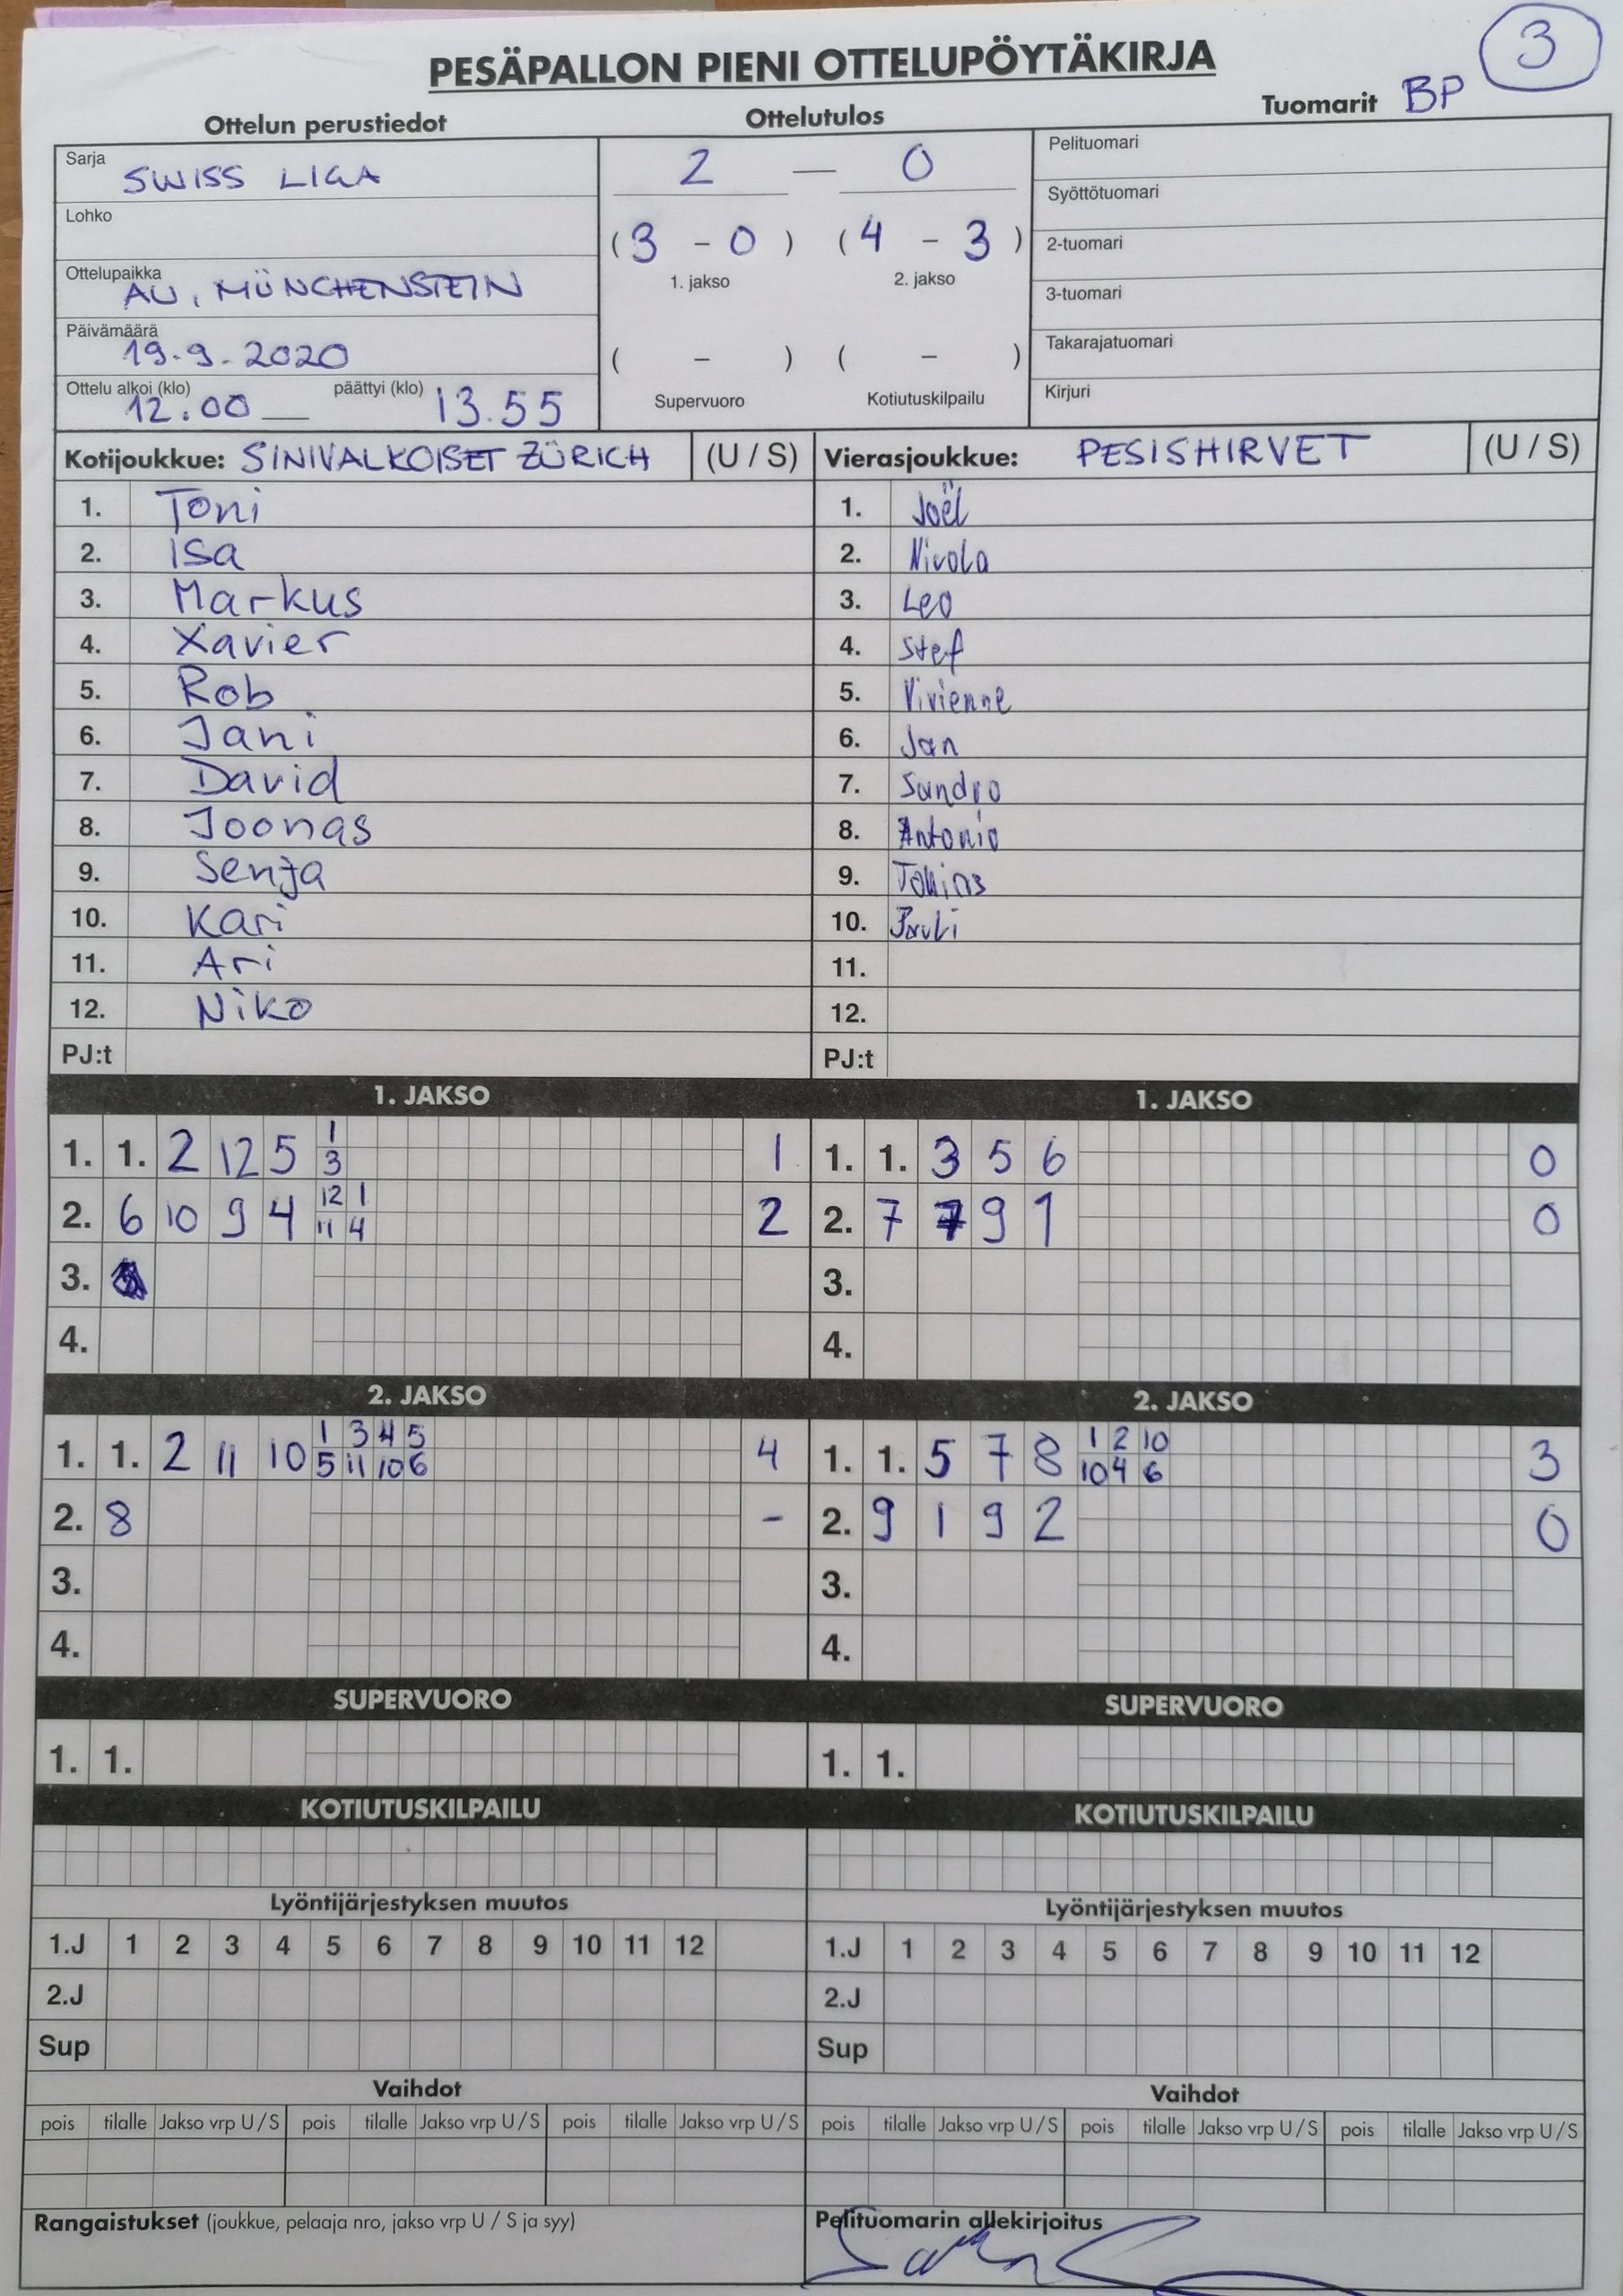 3
PESÄPALLON PIENI OTTELUPÖYTÄKIRJA
Ottelun perustiedot Ottelutulos Tuomarit BP
Sarja SWISS LIGA
Lohko
Ottelupaikka AU, MÜNCHENSTEIN
Päivämäärä 19.9.2020
Ottelu alkoi (klo) 12.00 päättyi (klo) 13.55
2 — 0
(3 - 0) (4 - 3)
1. jakso 2. jakso
( - ) ( - )
Supervuoro Kotiutuskilpailu
Pelituomari
Syöttötuomari
2-tuomari
3-tuomari
Takarajatuomari
Kirjuri
Kotijoukkue: SINIVALKOISET ZÜRICH (U / S)
1. Toni
2. Isa
3. Markus
4. Xavier
5. Rob
6. Jani
7. David
8. Joonas
9. Senja
10. Kari
11. Ari
12. Niko
PJ:t
Vierasjoukkue: PESISHIRVET (U / S)
1. Joël
2. Nicola
3. Leo
4. Stef
5. Vivienne
6. Jan
7. Sandro
8. Antonio
9.
10.
11.
12.
PJ:t
1. JAKSO
1. 1. 2 12 5 1 1
3
2. 6 10 9 4 12 1 2
11 4
3.
4.
1. JAKSO
1. 1. 3 5 6 0
2. 7 7 9 1 0
3.
4.
2. JAKSO
1. 1. 2 11 10 1 3 4 5 4
5 11 10 6
2. 8 -
3.
4.
2. JAKSO
1. 1. 5 7 8 1 2 10 3
10 4 6
2. 9 1 9 2 0
3.
4.
SUPERVUORO SUPERVUORO
1. 1. 1. 1.
KOTIUTUSKILPAILU KOTIUTUSKILPAILU
Lyöntijärjestyksen muutos Lyöntijärjestyksen muutos
1.J 1 2 3 4 5 6 7 8 9 10 11 12 1.J 1 2 3 4 5 6 7 8 9 10 11 12
2.J 2.J
Sup Sup
Vaihdot Vaihdot
pois tilalle Jakso vrp U/S pois tilalle Jakso vrp U/S pois tilalle Jakso vrp U/S pois tilalle Jakso vrp U/S pois tilalle Jakso vrp U/S pois tilalle Jakso vrp U/S
Rangaistukset (joukkue, pelaaja nro, jakso vrp U / S ja syy) Pelituomarin allekirjoitus